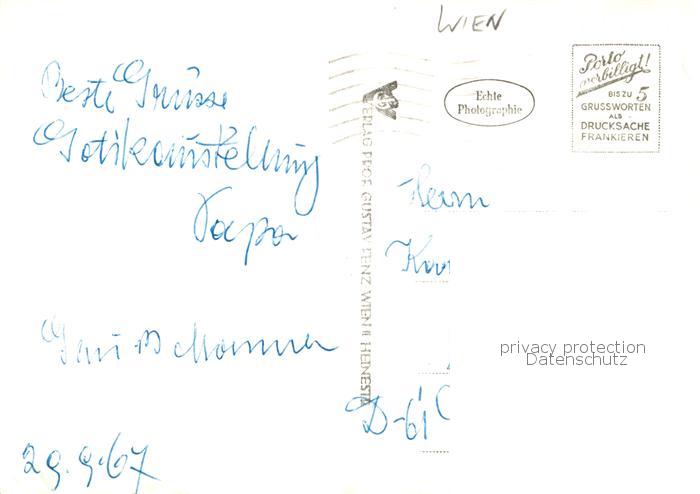 WIEN
Beste Grüsse
Gotikausstellung
Papa
Mamma
29.9.67
Echte
Photographie
Porto
verbilligt!
BIS ZU 5
GRUSSWORTEN
ALS
DRUCKSACHE
FRANKIEREN
VERLAG PROF. GUSTAV FENZ WIEN II HEINESTR
Herrn
D-61
privacy protection
Datenschutz